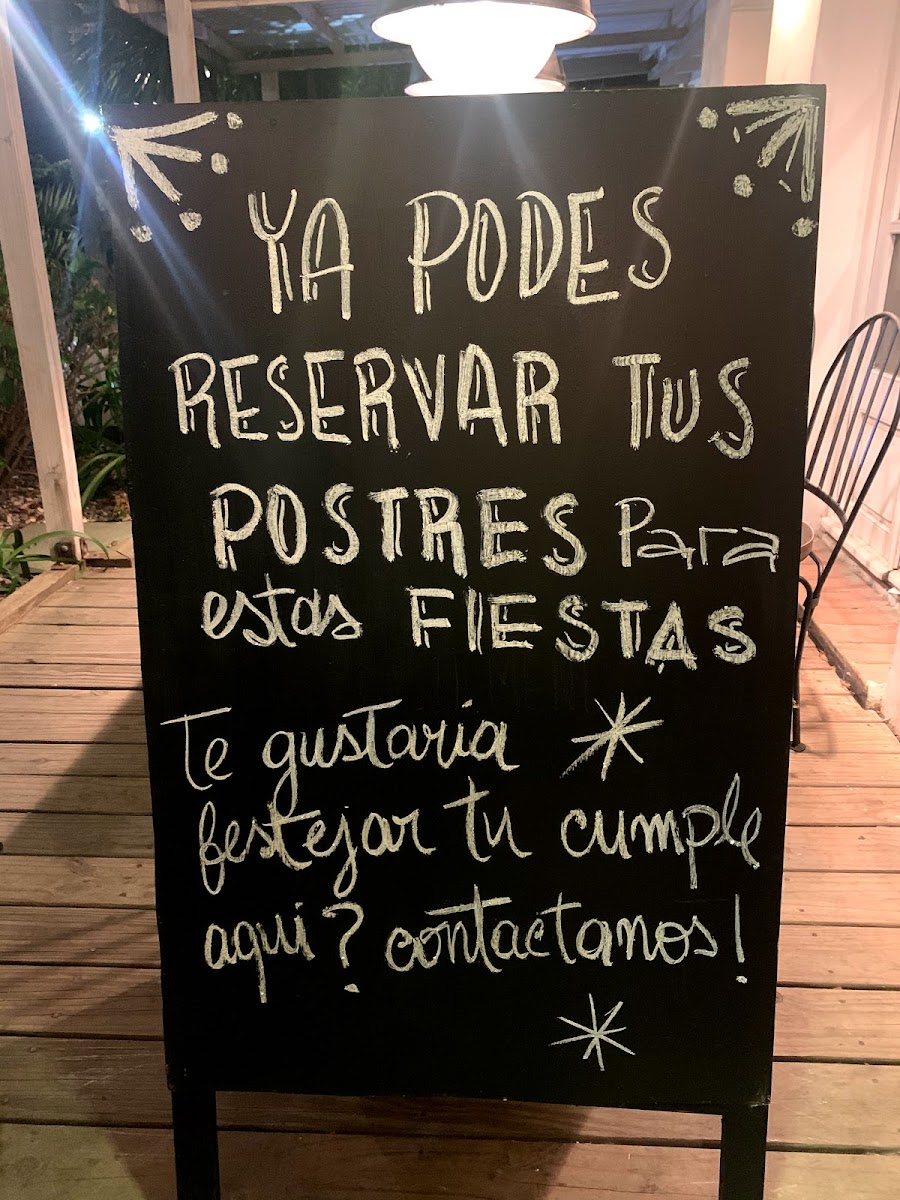 YA PODES
RESERVAR TUS
POSTRES Para
estas FIESTAS
Te gustaria
festejar tu cumple
aqui? contactanos!